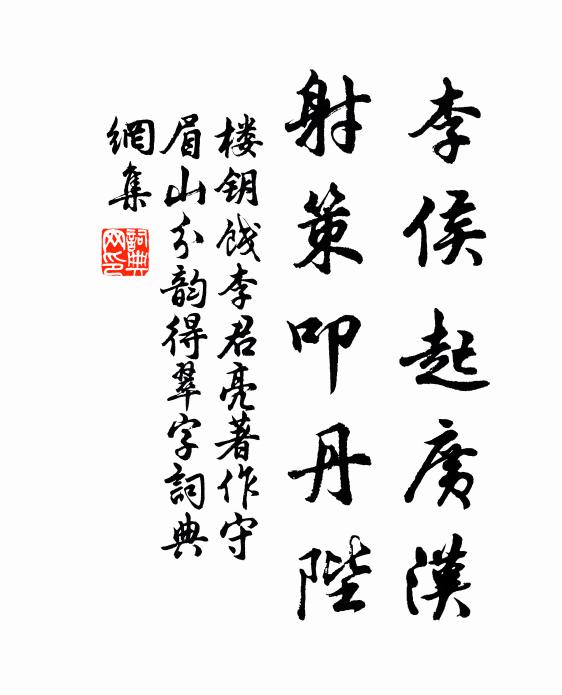 李侯起廣漢
射策叩丹陛
楼钥饯李君亮著作守
眉山分韵得翠字詞典
網集
詞典
网印